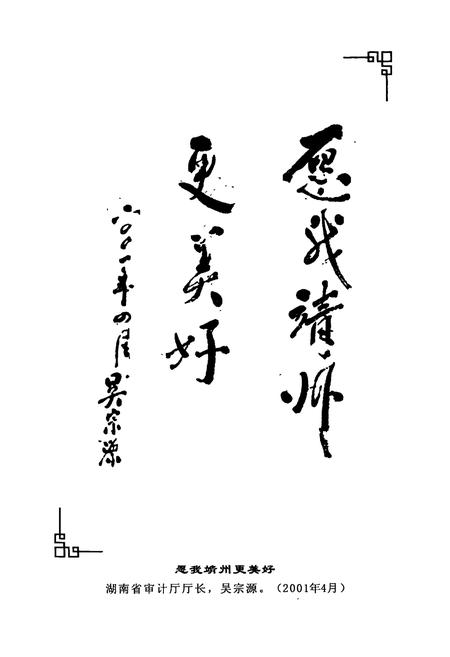 愿我靖州
更美好
二〇〇一年四月吴宗源
愿我靖州更美好
湖南省审计厅厅长，吴宗源。（2001年4月）